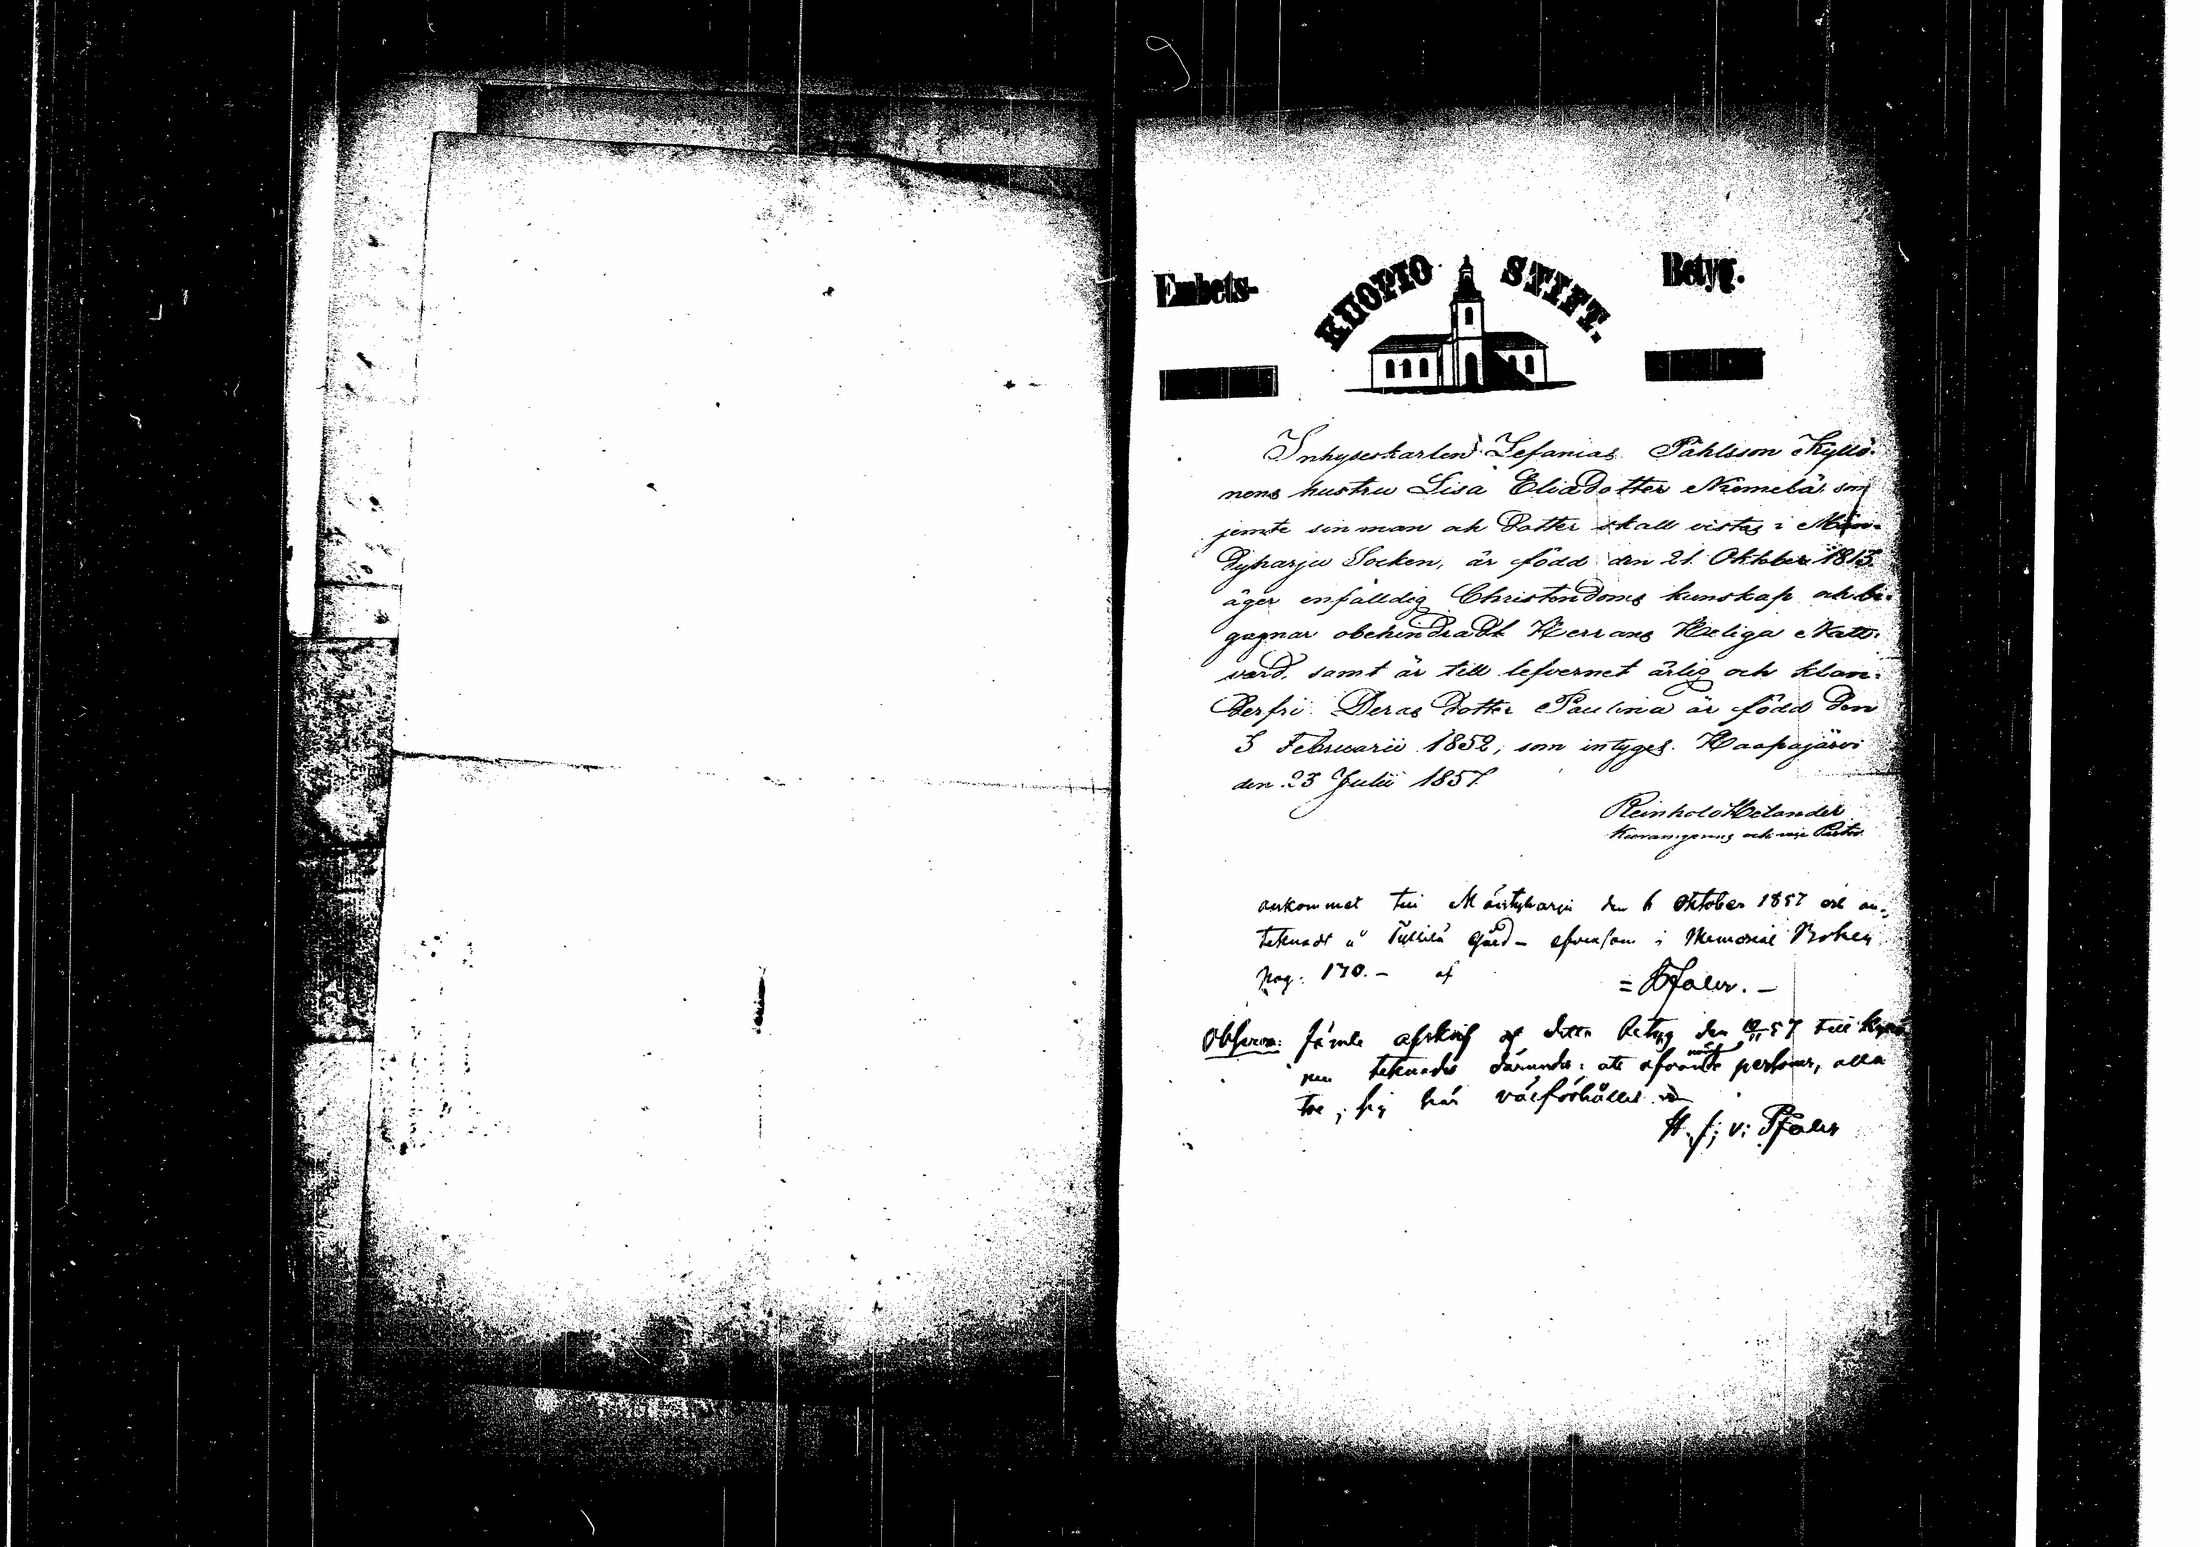 9
Embets-
KUOPIO STIFT.
Betyg.
Inhyseskarlen Zefanias Påhlsson Kyllö-
nens hustru Lisa Eliadotter Niemelä, som
jemte sin man och dotter skall vistas i Män-
dyharju Socken, är född den 21. Oktober 1813.
äger enfalldig Christendoms kunskap och be-
gagnar obehindradt Herrans Heliga Natt-
vard, samt är till lefvernet ärlig och klan-
derfri. Deras dotter Paulina är född den
3 Februarii 1852, som intyges. Haapajärvi
den 23 Julii 1857.
Reinhold Helander
och vice Pastor
ankommet till Mäntyharju den 6 Oktober 1857 och an-
teknadt å Gård - äfvensom i Memorial Boken
pag. 170. - af
Observ: Jämte afskrift af detta betyg den till
teknades därunder: att personer, alla
tre, sig här välförhållit.